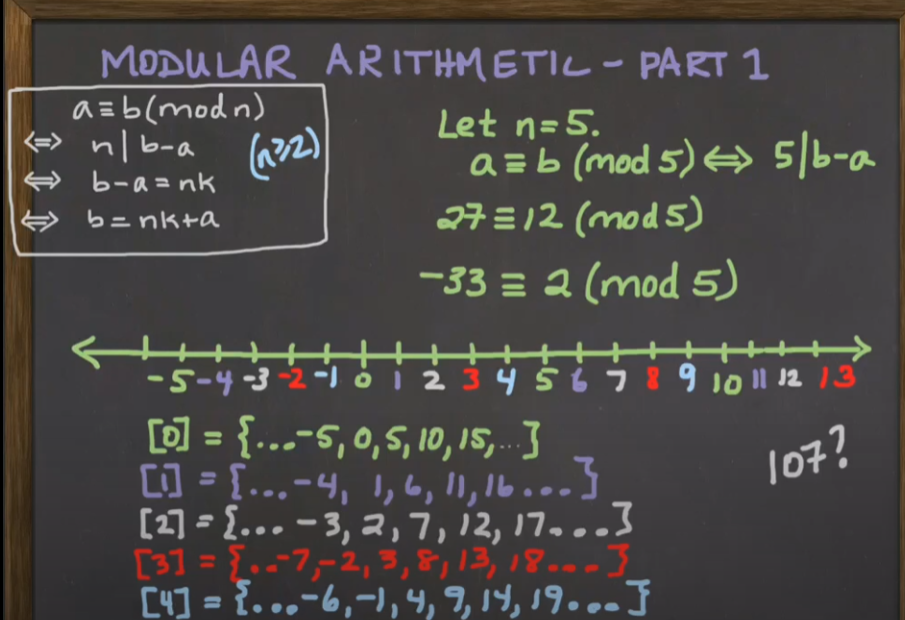 MODULAR ARITHMETIC - PART 1
a≡b(mod n)
⇔ n | b-a (n≥2)
⇔ b-a=nk
⇔ b=nk+a
Let n=5.
a≡b (mod 5) ⇔ 5|b-a
27≡12 (mod 5)
-33 ≡ 2 (mod 5)
-5 -4 -3 -2 -1 0 1 2 3 4 5 6 7 8 9 10 11 12 13
[0] = {...-5, 0, 5, 10, 15, ...}
[1] = {...-4, 1, 6, 11, 16 ....}
[2] = {... -3, 2, 7, 12, 17....}
[3] = {..-7, -2, 3, 8, 13, 18....}
[4] = {...-6, -1, 4, 9, 14, 19....}
107?